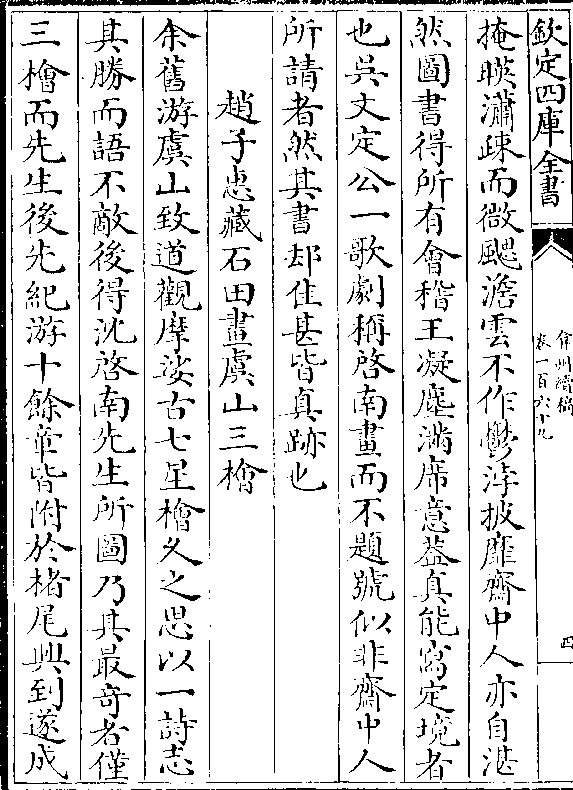 欽定四庫全書
弇州續稿
卷一百六十九
四
掩暎瀟疎而微颸澹雲不作鬱浡披靡齋中人亦自湛
然圖書得所有會稽王凝塵滿席意葢真能寫定境者
也吳文定公一歌劇稱啓南畫而不題號似非齋中人
所請者然其書却佳甚皆真跡也
趙子惠藏石田畫虞山三檜
余舊游虞山致道觀摩娑古七星檜久之思以一詩志
其勝而語不敵後得沈啓南先生所圖乃其最奇者僅
三檜而先生後先紀游十餘章皆附於楮尾興到遂成